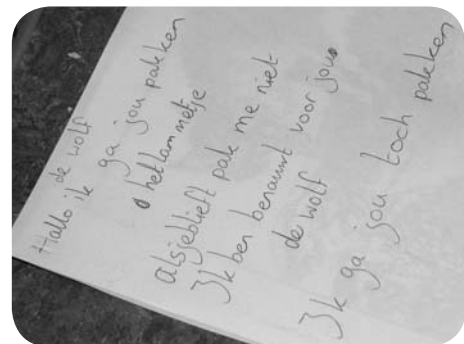 de wolf
Hallo ik ga jou pakken
het lammetje
alsjeblieft pak me niet
Ik ben benauwt voor jou
de wolf
Ik ga jou toch pakken